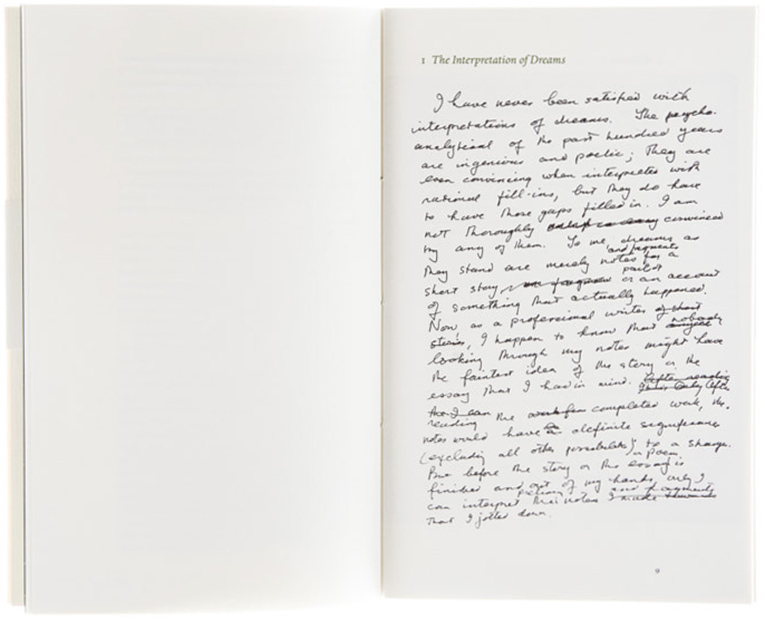 1 The Interpretation of Dreams
I have never been satisfied with
interpretations of dreams. The psycho-
analytical of the past hundred years
are ingenious and poetic; They are
even convincing when interpreted with
rational fill-ins, but they do have
to have those gaps filled in. I am
not thoroughly convinced
by any of them. To me, dreams as
and fragments
they stand are merely notes for a
part of
short story, or an account
of something that actually happened.
Now, as a professional writer of short
stories, I happen to know that nobody
looking through my notes might have
the faintest idea of the story or the
essay that I had in mind. After reading
Only after
reading the completed work, the
notes would have a definite significance
(excluding all other possibilities) to a stranger.
or poem
But before the story or the essay is
finished and out of my hands, only I
can interpret the notes and fragments
that I jotted down.
9